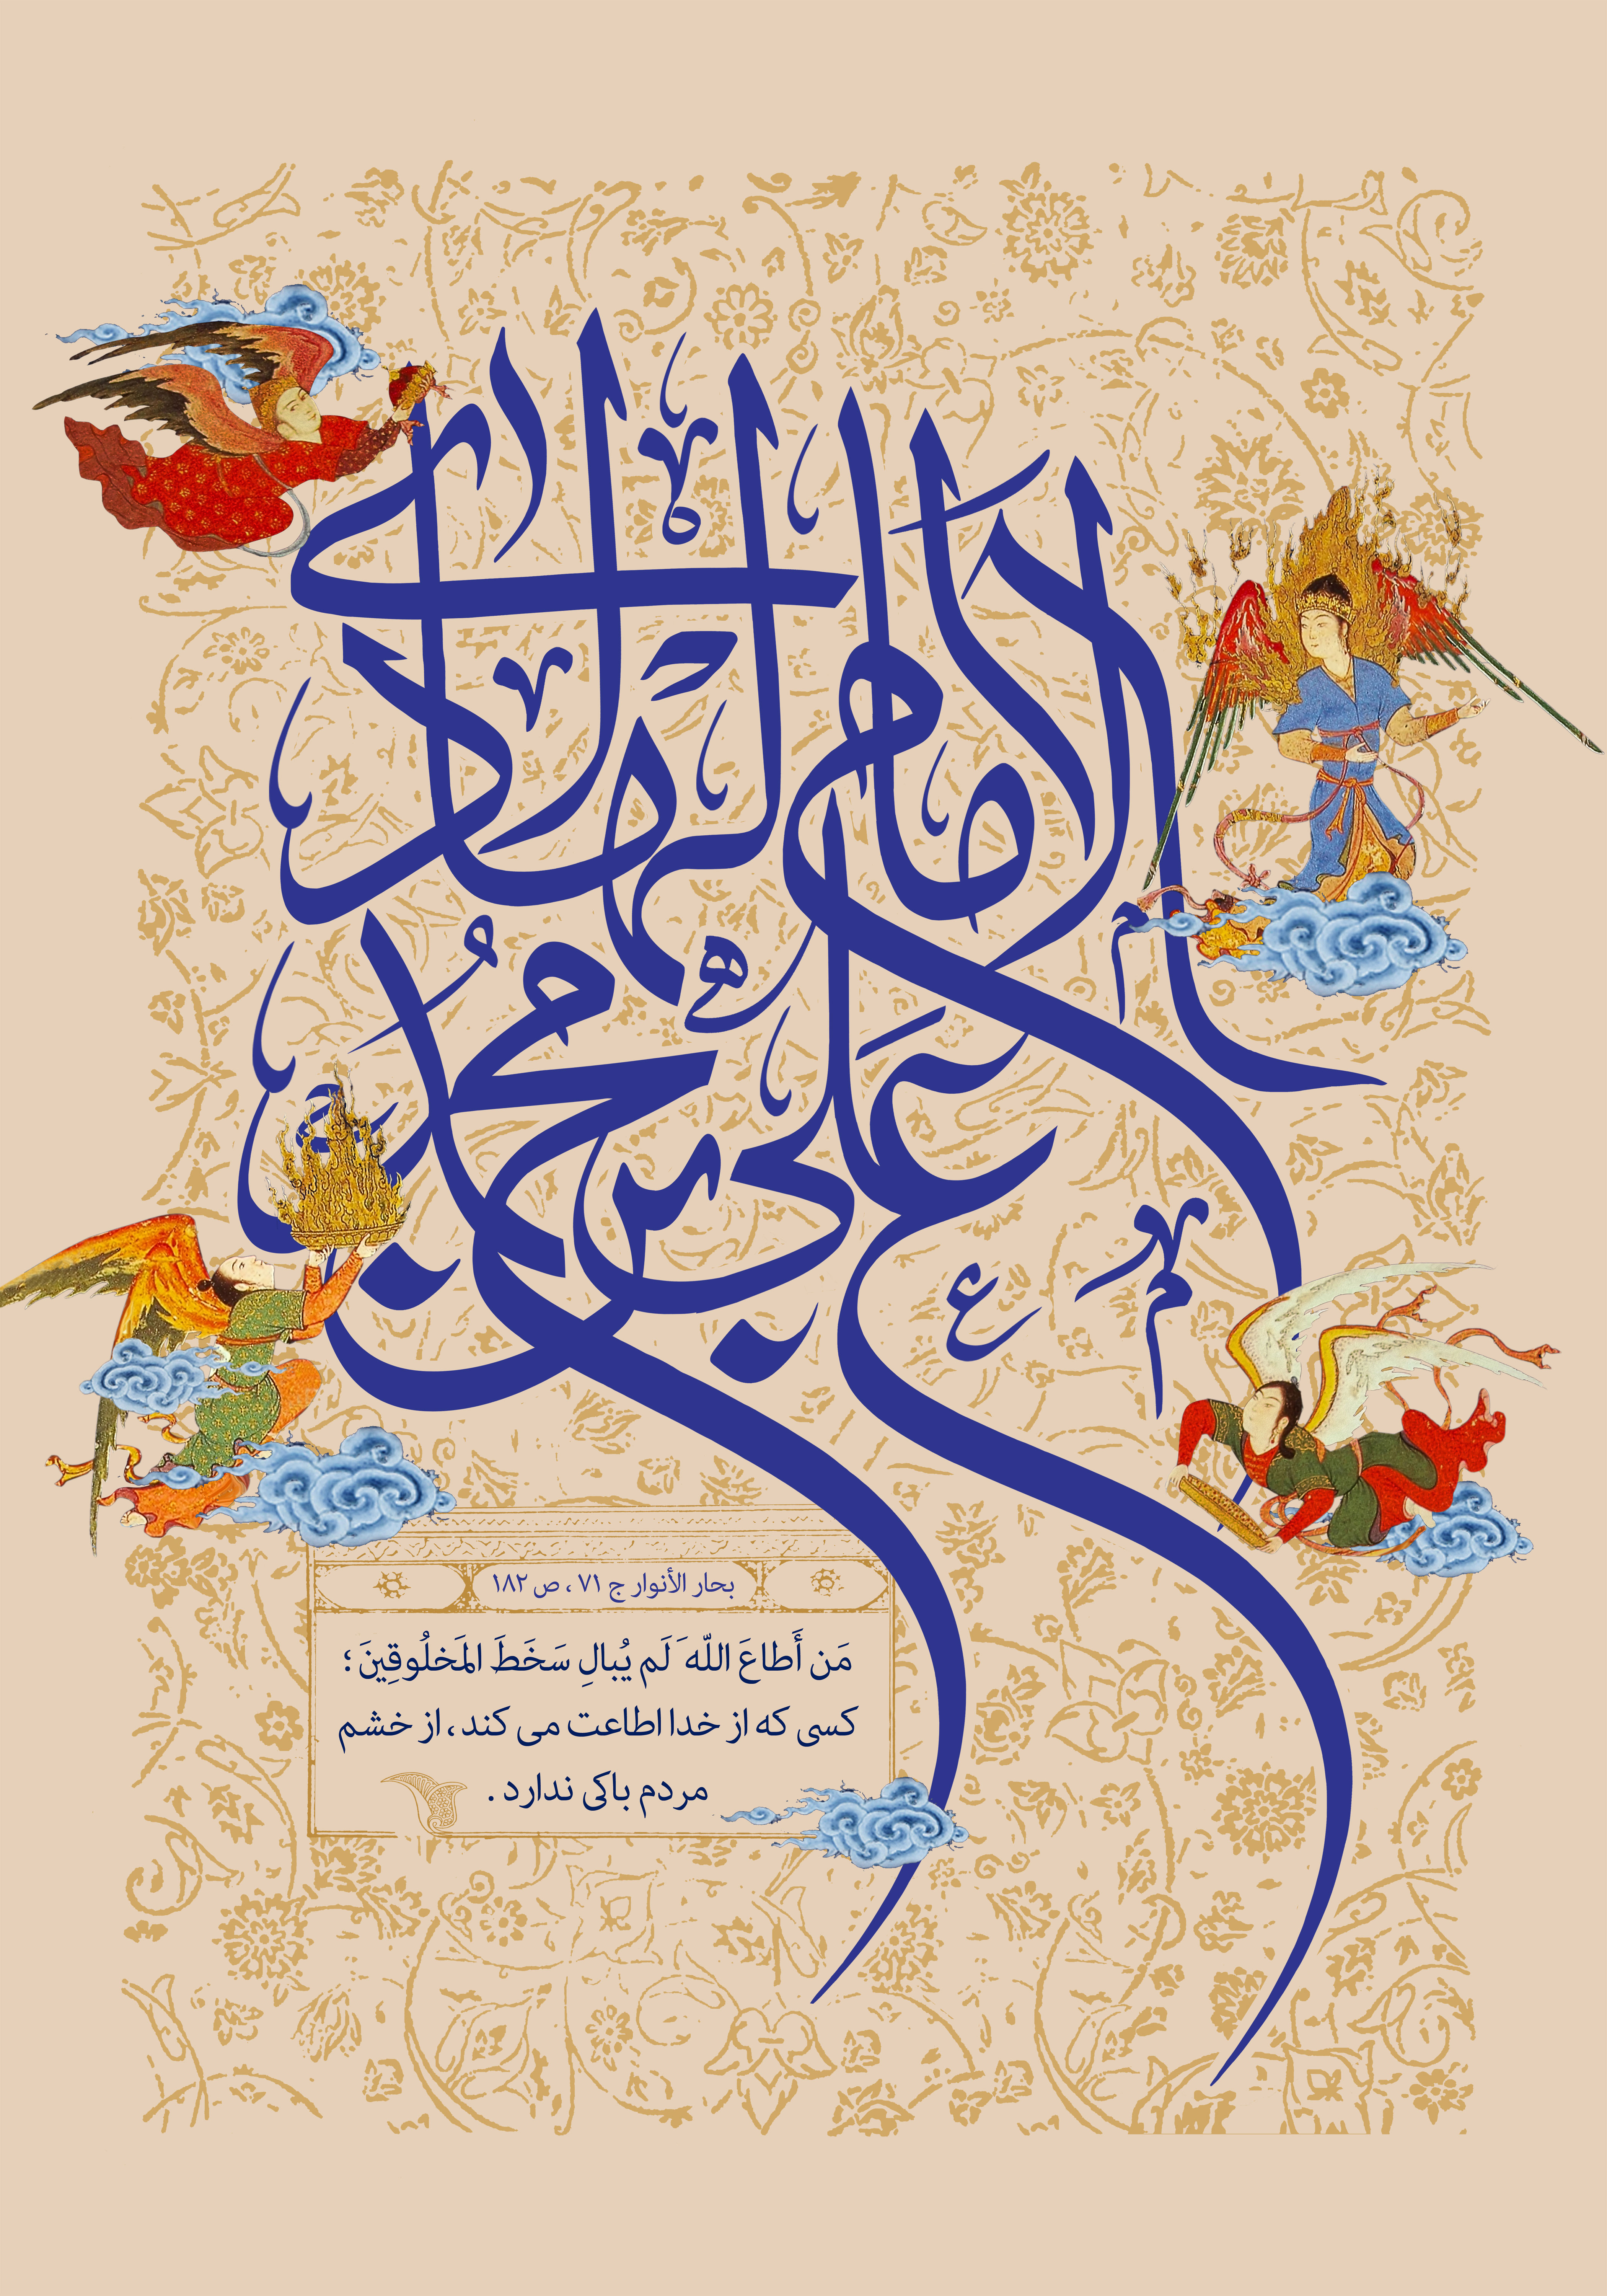 الامام الهادی
علی بن محمد
بحار الأنوار ج ۷۱ ، ص ۱۸۲
مَن أَطاعَ اللّهَ لَم يُبالِ سَخَطَ المَخلُوقِينَ ؛
کسی که از خدا اطاعت می کند ، از خشم
مردم باکی ندارد .